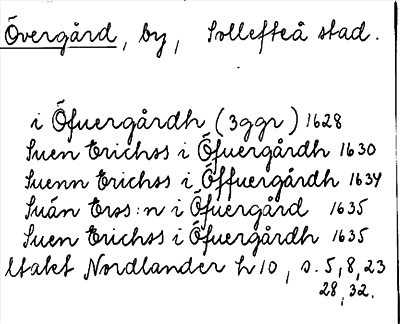 Övergård, by, Sollefteå stad.
i Öfuergårdh (3ggr) 1628
Suen Erichss i Öfuergårdh 1630
Suenn Erichss i Öffuergårdh 1634
Suän Erss:n i Öfuergård 1635
Suen Erichss i Öfuergårdh 1635
Utakt Nordlander h 10, s. 5, 8, 23
28, 32.